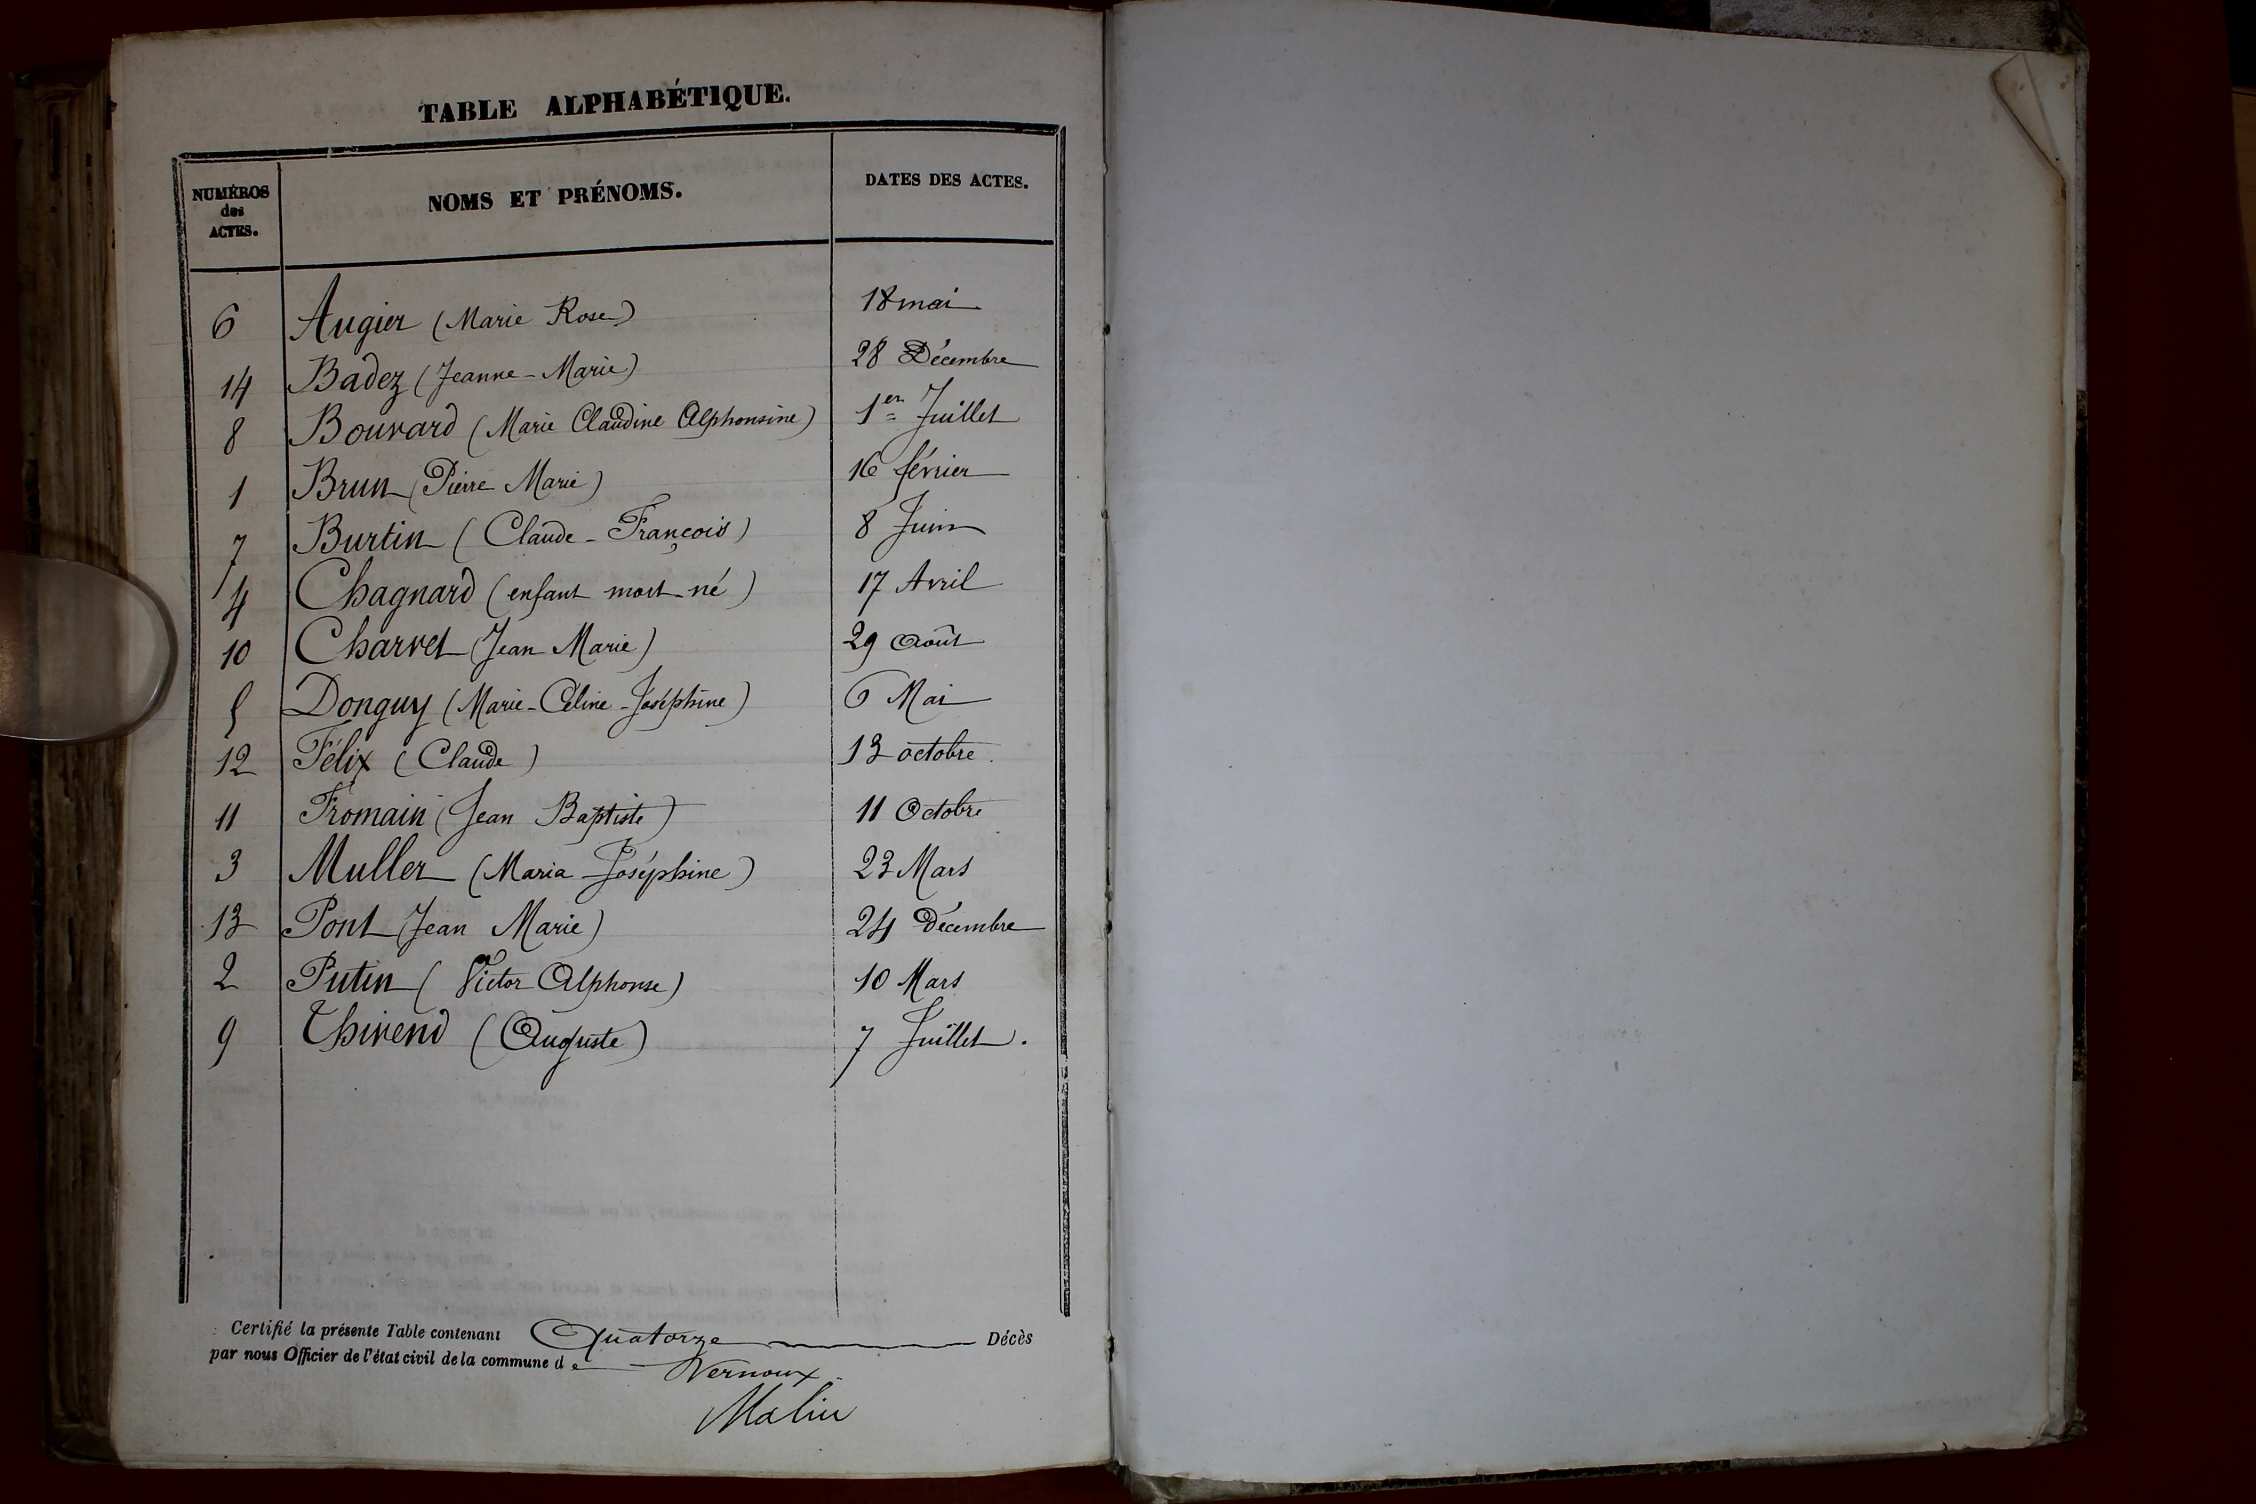 TABLE ALPHABÉTIQUE.
NUMÉROS des ACTES. NOMS ET PRÉNOMS. DATES DES ACTES.
6 Augier (Marie Rose) 18 mai
14 Badez (Jeanne-Marie) 28 Décembre
8 Bouvard (Marie Claudine Alphonsine) 1er Juillet
1 Brun (Pierre Marie) 16 février
7 Burtin (Claude-François) 8 Juin
4 Chagnard (enfant mort-né) 17 Avril
10 Charvet (Jean Marie) 29 Août
5 Donguy (Marie-Céline-Joséphine) 6 Mai
12 Félix (Claude) 13 octobre.
11 Fromain (Jean Baptiste) 11 Octobre
3 Muller (Maria Joséphine) 23 Mars
13 Pont (Jean Marie) 24 Décembre
2 Putin (Victor Alphonse) 10 Mars
9 Thivend (Auguste) 7 Juillet.
Certifié la présente Table contenant Quatorze Décès
par nous Officier de l'état civil de la commune de Vernoux